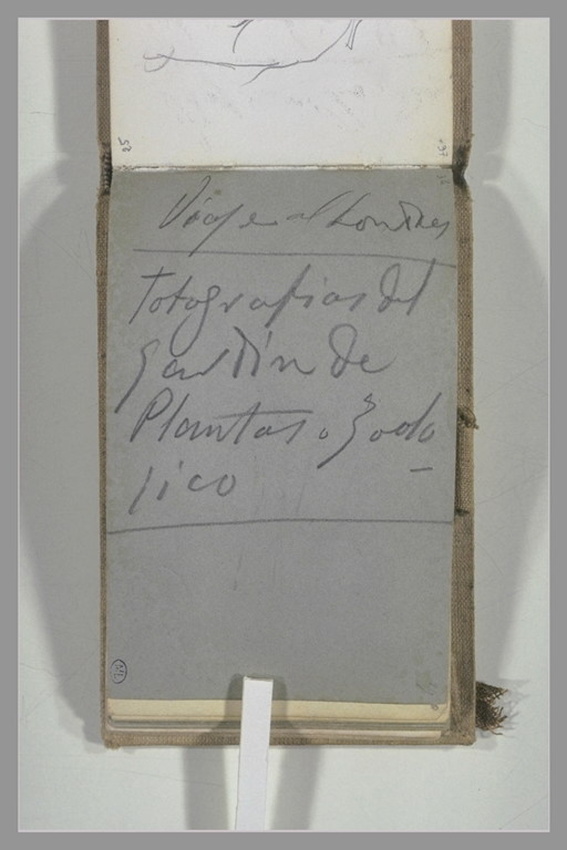 25
Viaje a Londres
Fotografias del
Jardin de
Plantas o Zoolo
jico